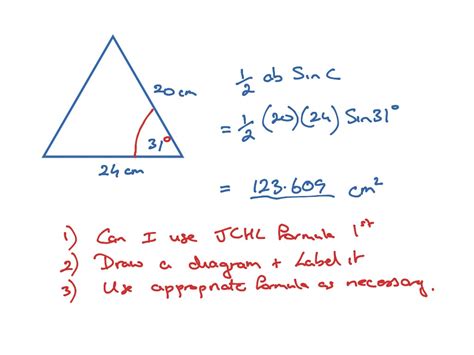 20 cm
31°
24 cm
1/2 ab Sin C
= 1/2 (20)(24) Sin31°
= 123.609 cm²
1) Can I use JCHL formula 1st
2) Draw a diagram + Label it
3) Use appropriate formula as necessary.